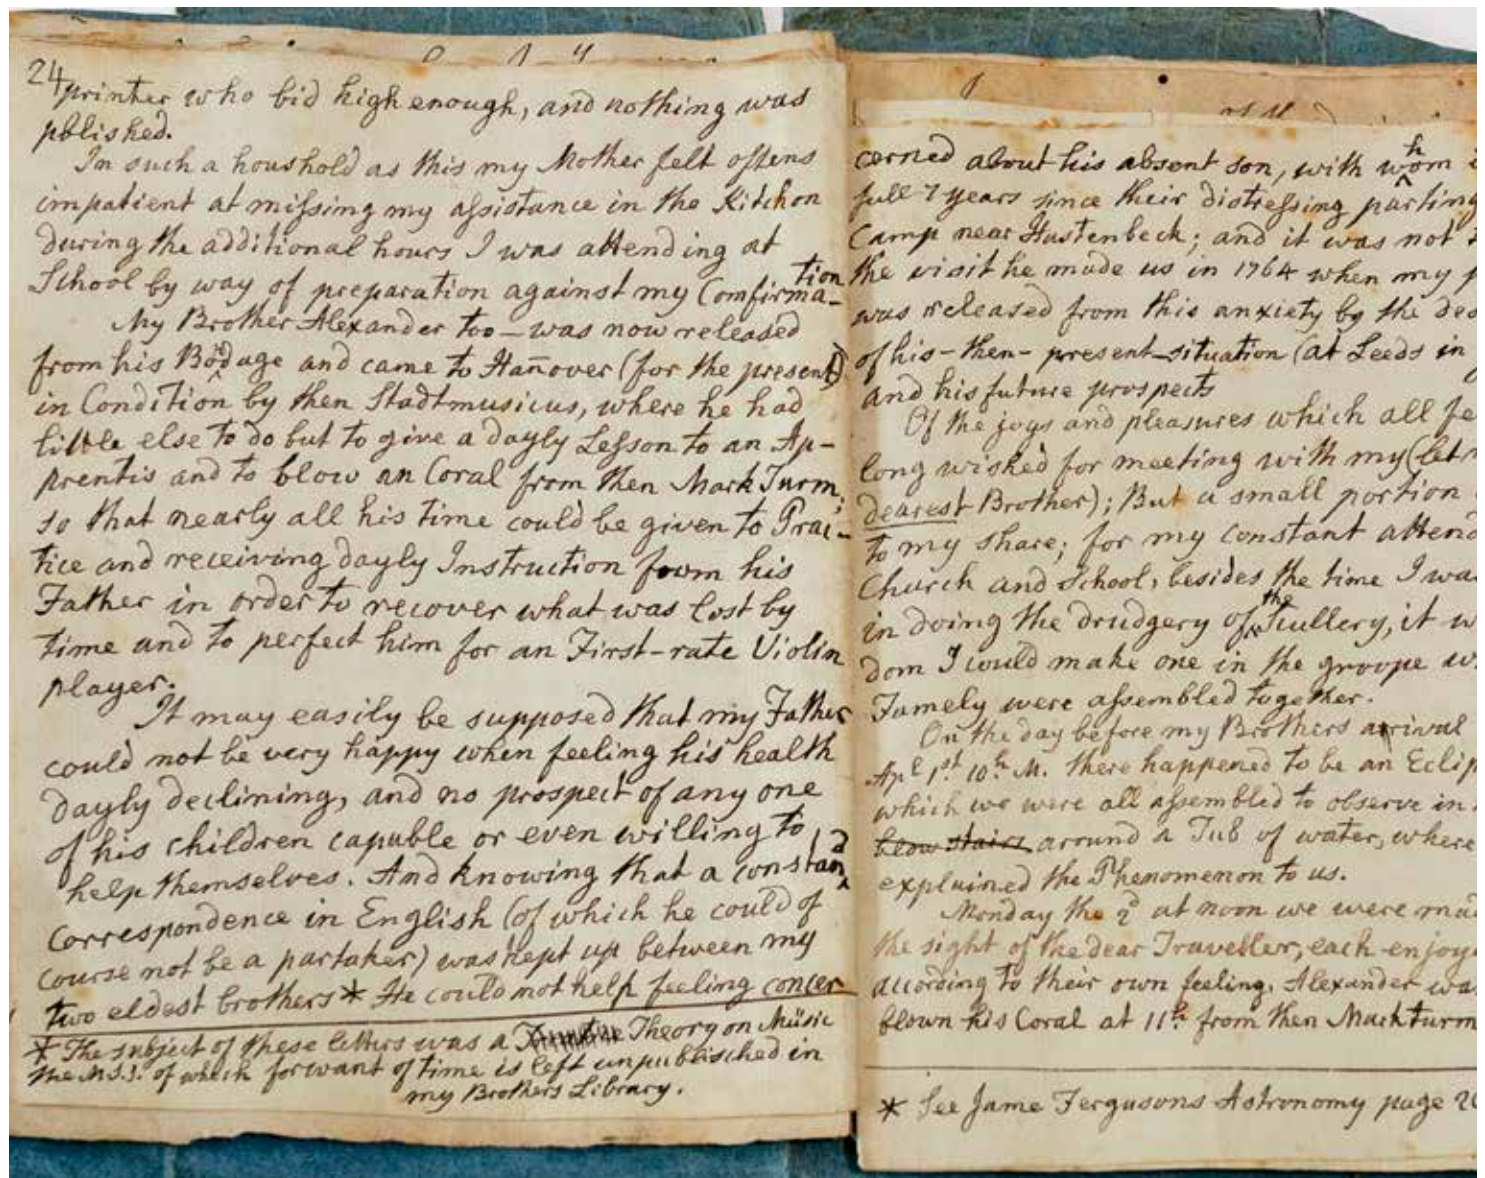 24
printer who bid high enough, and nothing was
pblished.
In such a houshold as this my Mother felt oftens
impatient at missing my assistance in the Kitchon
during the additional hours I was attending at
School by way of preparation against my Comfirma-
tion
My Brother Alexander too – was now released
from his Bondage and came to Hañover (for the present)
in Condition by then Stadtmusicus, where he had
little else to do but to give a dayly Lesson to an Ap-
prentis and to blow an Coral from then Mark Turm;
so that nearly all his time could be given to Prac-
tice and receiving dayly Instruction fowm his
Father in order to recover what was lost by
time and to perfect him for an First-rate Violin
player.
It may easily be supposed that my Father
could not be very happy when feeling his health
dayly declining, and no prospect of any one
of his children capuble or even willing to
help themselves. And knowing that a constand
Correspondence in English (of which he could of
course not be a partaker) was kept up between my
two eldest brothers * He could not help feeling concer
* The subject of these letters was a Theory on Müsic
the M.S.S. of which for want of time is left unpublisched in
my Brothers Library.
cerned about his absent son, with whom
full 7 years since their distressing parting
Camp near Hastenbeck; and it was not
the visit he made us in 1764 when my
was released from this anxiety by the
of his – then – present – situation (at Leeds in
and his future prospects
Of the joys and pleasures which all
long wished for meeting with my
dearest Brother); But a small portion
to my share; for my constant
Church and School, besides the time I
in doing the drudgery of the Scullery, it
dom I would make one in the groope
Famely were assembled together.
On the day before my Brothers arrival
Apl 1st 10h M. there happened to be an
which we were all assembled to observe in
below stairs around a Tub of water, where
explained the Phenomenon to us.
Monday the 2d at noon we were
the sight of the dear Traveller, each
according to their own feeling. Alexander
blown his Coral at 11h from then Markturm
* See Jame Fergusons Astronomy page